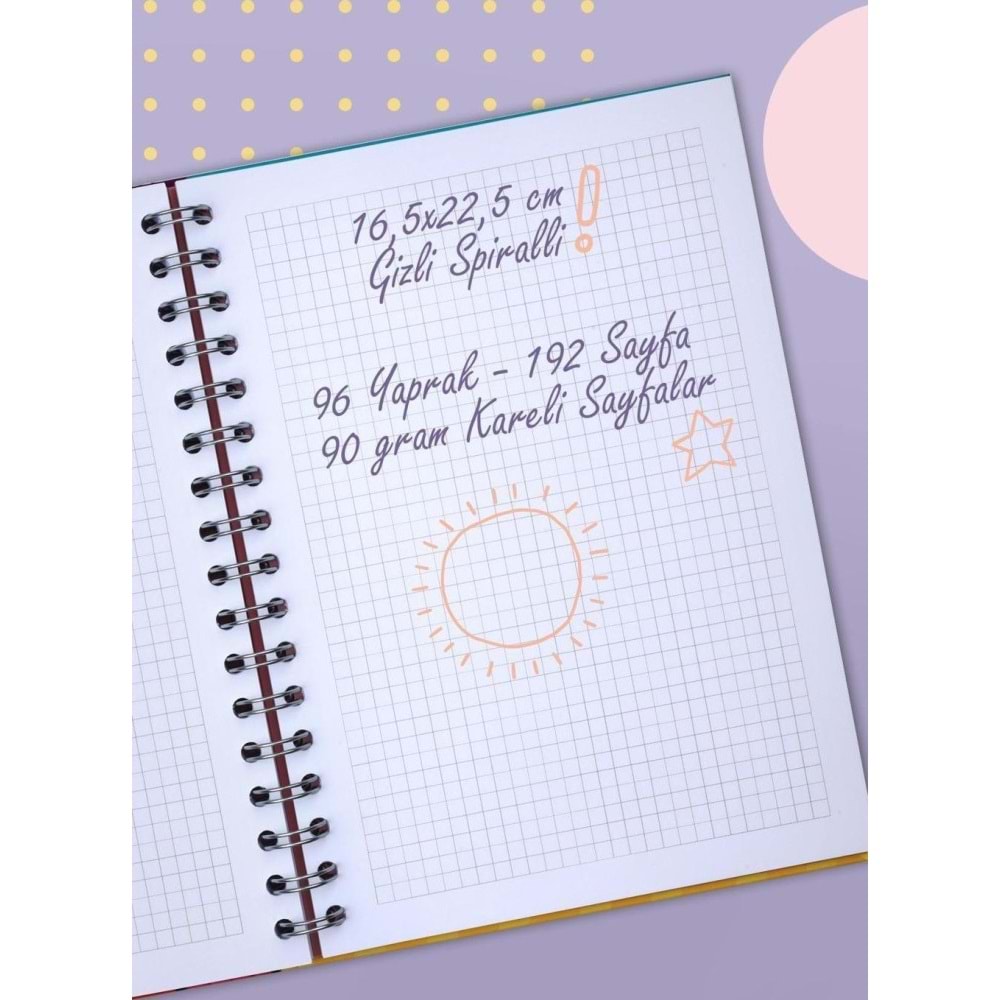 16,5x22,5 cm
Gizli Spiralli !
96 Yaprak - 192 Sayfa
90 gram Kareli Sayfalar